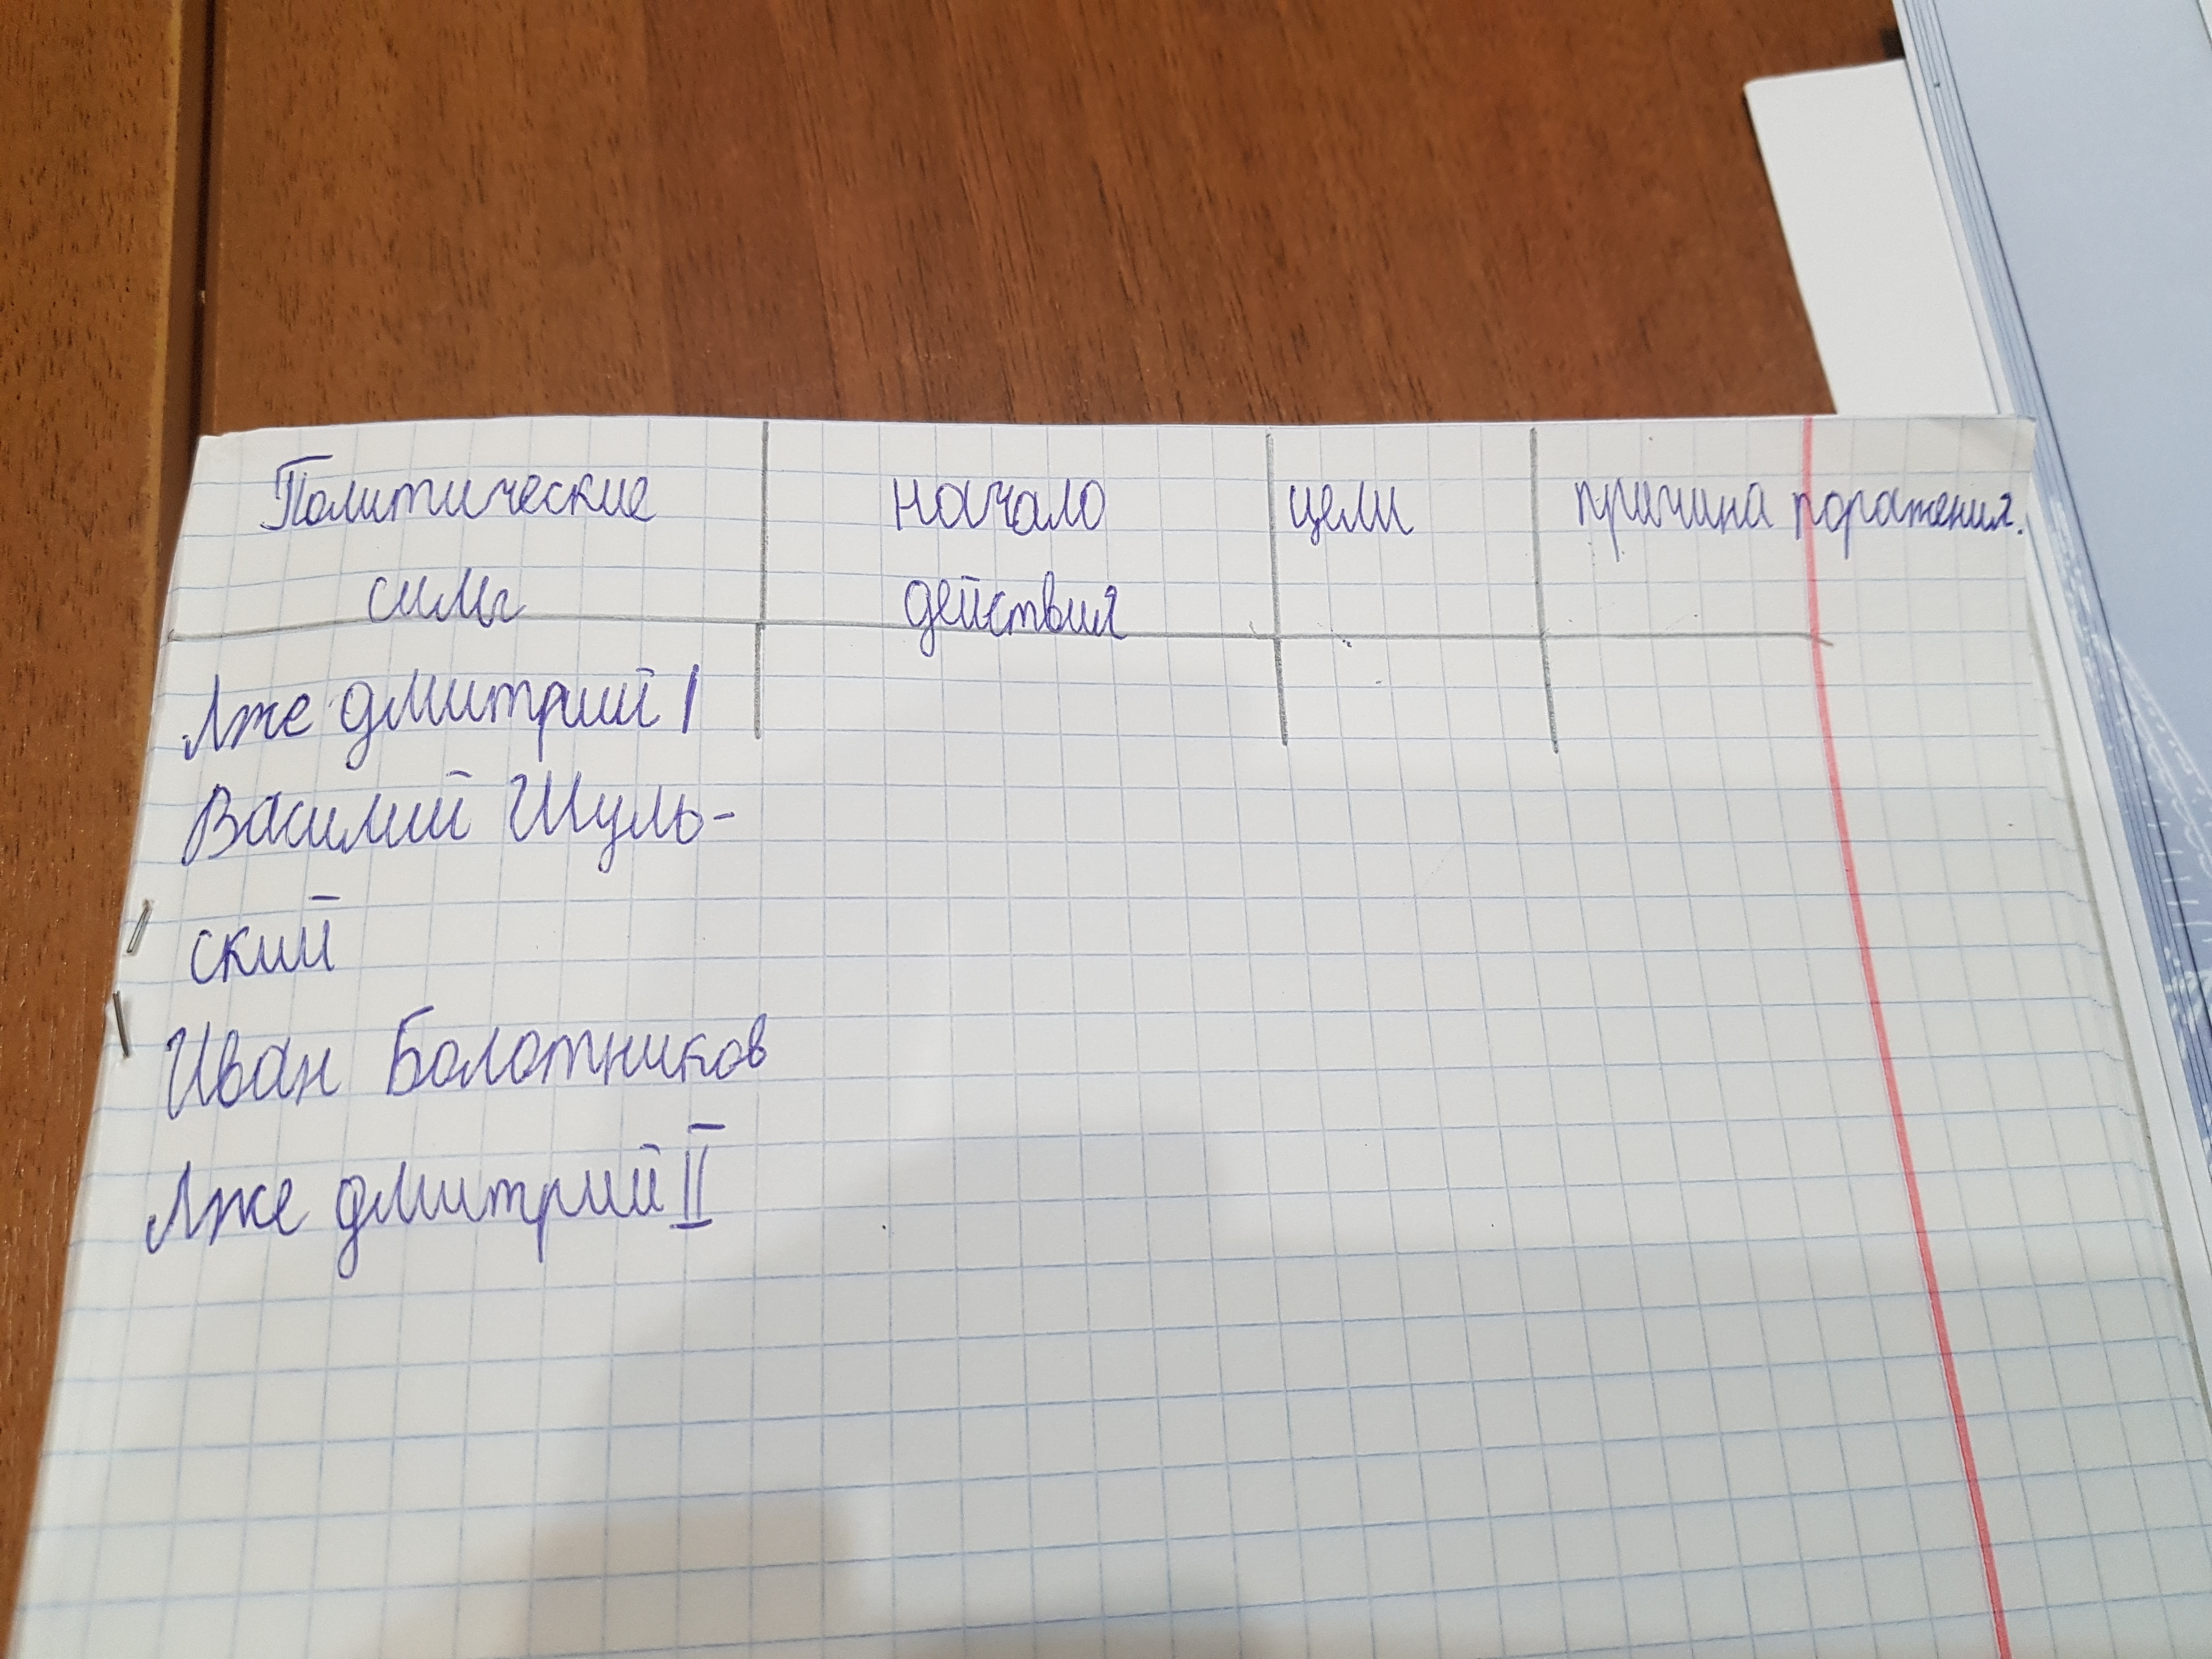 Политические начало цели причина поражения.
силы действия
Лже дмитрий I
Василий Шуль-
ский
Иван Болотников
Лже дмитрий II